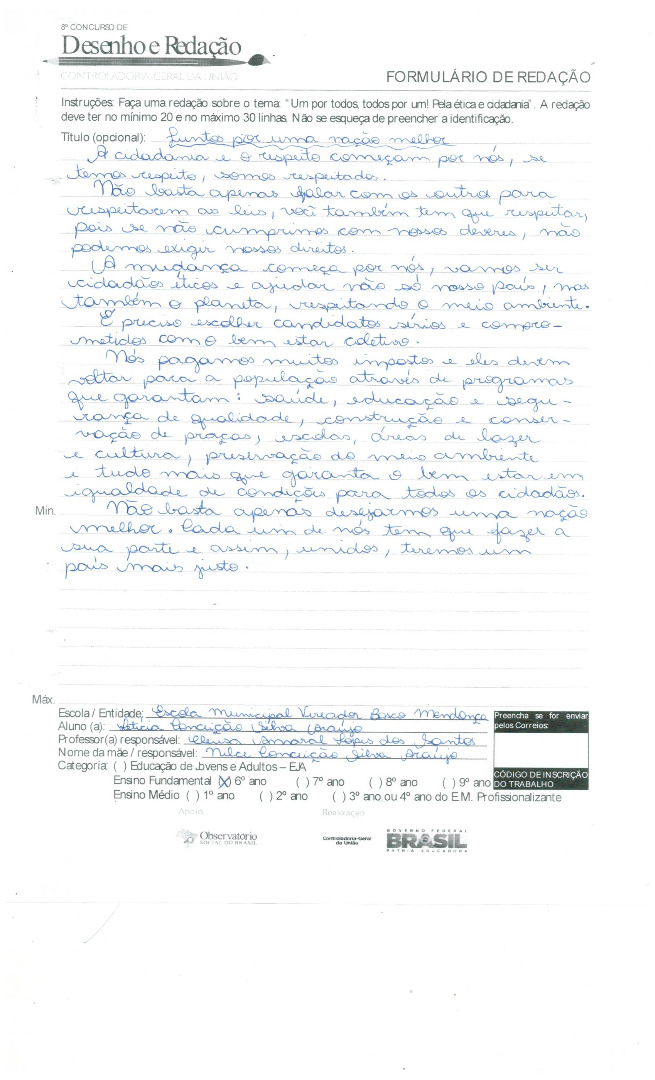 8º CONCURSO DE
Desenho e Redação
CONTROLADORIA-GERAL DA UNIÃO
FORMULÁRIO DE REDAÇÃO
Instruções: Faça uma redação sobre o tema: "Um por todos, todos por um! Pela ética e cidadania". A redação
deve ter no mínimo 20 e no máximo 30 linhas. Não se esqueça de preencher a identificação.
Título (opcional): Juntos por uma nação melhor
A cidadania e o respeito começam por nós, se
temos respeito, somos respeitados.
Não basta apenas falar com os outros para
respeitarem as leis, você também tem que respeitar,
pois se não cumprimos com nossos deveres, não
podemos exigir nossos direitos.
A mudança começa por nós, vamos ser
cidadãos éticos e ajudar não só nosso país, mas
também o planeta, respeitando o meio ambiente.
É preciso escolher candidatos sérios e compro-
metidos com o bem estar coletivo.
Nós pagamos muitos impostos e eles devem
voltar para a população através de programas
que garantam: saúde, educação e segu-
rança de qualidade, construção e conser-
vação de praças, escolas, áreas de lazer
e cultura, preservação do meio ambiente
e tudo mais que garanta o bem estar em
igualdade de condições para todos os cidadãos.
Mín. Não basta apenas desejarmos uma nação
melhor. Cada um de nós tem que fazer a
sua parte e assim, unidos, teremos um
país mais justo.
Máx.
Escola / Entidade: Escola Municipal Vereador Bosco Mendonça
Aluno (a): Letícia Conceição Silva Araújo
Professor(a) responsável: Cleusa Amaral Lopes dos Santos
Nome da mãe / responsável: Nilce Conceição Silva Araújo
Categoria: ( ) Educação de Jovens e Adultos – EJA
Ensino Fundamental (X) 6º ano ( ) 7º ano ( ) 8º ano ( ) 9º ano
Ensino Médio ( ) 1º ano ( ) 2º ano ( ) 3º ano ou 4º ano do E.M. Profissionalizante
Preencha se for enviar
pelos Correios:
CÓDIGO DE INSCRIÇÃO
DO TRABALHO
Apoio
Realização
Observatório
SOCIAL DO BRASIL
Controladoria-Geral
da União
GOVERNO FEDERAL
BRASIL
PÁTRIA EDUCADORA